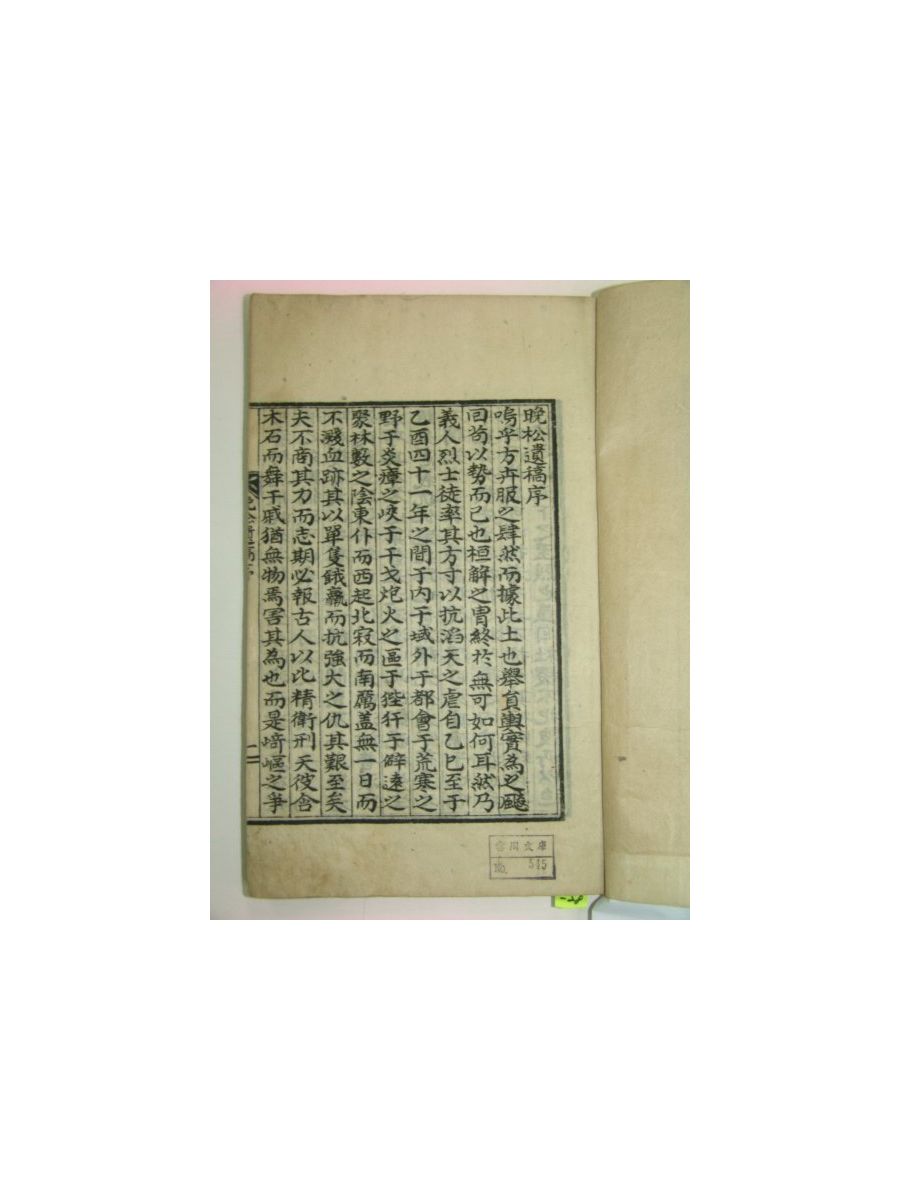 晩松遺稿序
嗚乎方卉服之肆然而據此土也擧負輿實為之颺
曰苟以勢而已也桓解之冑終於無可如何耳然乃
義人烈士徒率其方寸以抗滔天之虐自乙巳至于
乙酉四十一年之間于内于域外于都會于荒寒之
野于炎瘴之峽于干戈炮火之區于狴犴于僻遠之
聚林藪之陰東仆而西起北寂而南厲盖無一日而
不濺血跡其以單隻餓羸而抗強大之仇其艱至矣
夫不商其力而志期必報古人以比精衛刑天彼含
木石而舞干戚猶無物焉害其為也而是﨑嶇之爭
二
No. 545
文庫